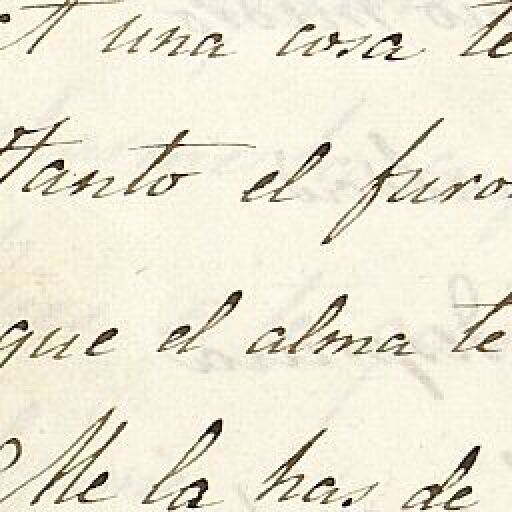 una cosa te
Tanto el furor
que el alma te
Me la has de